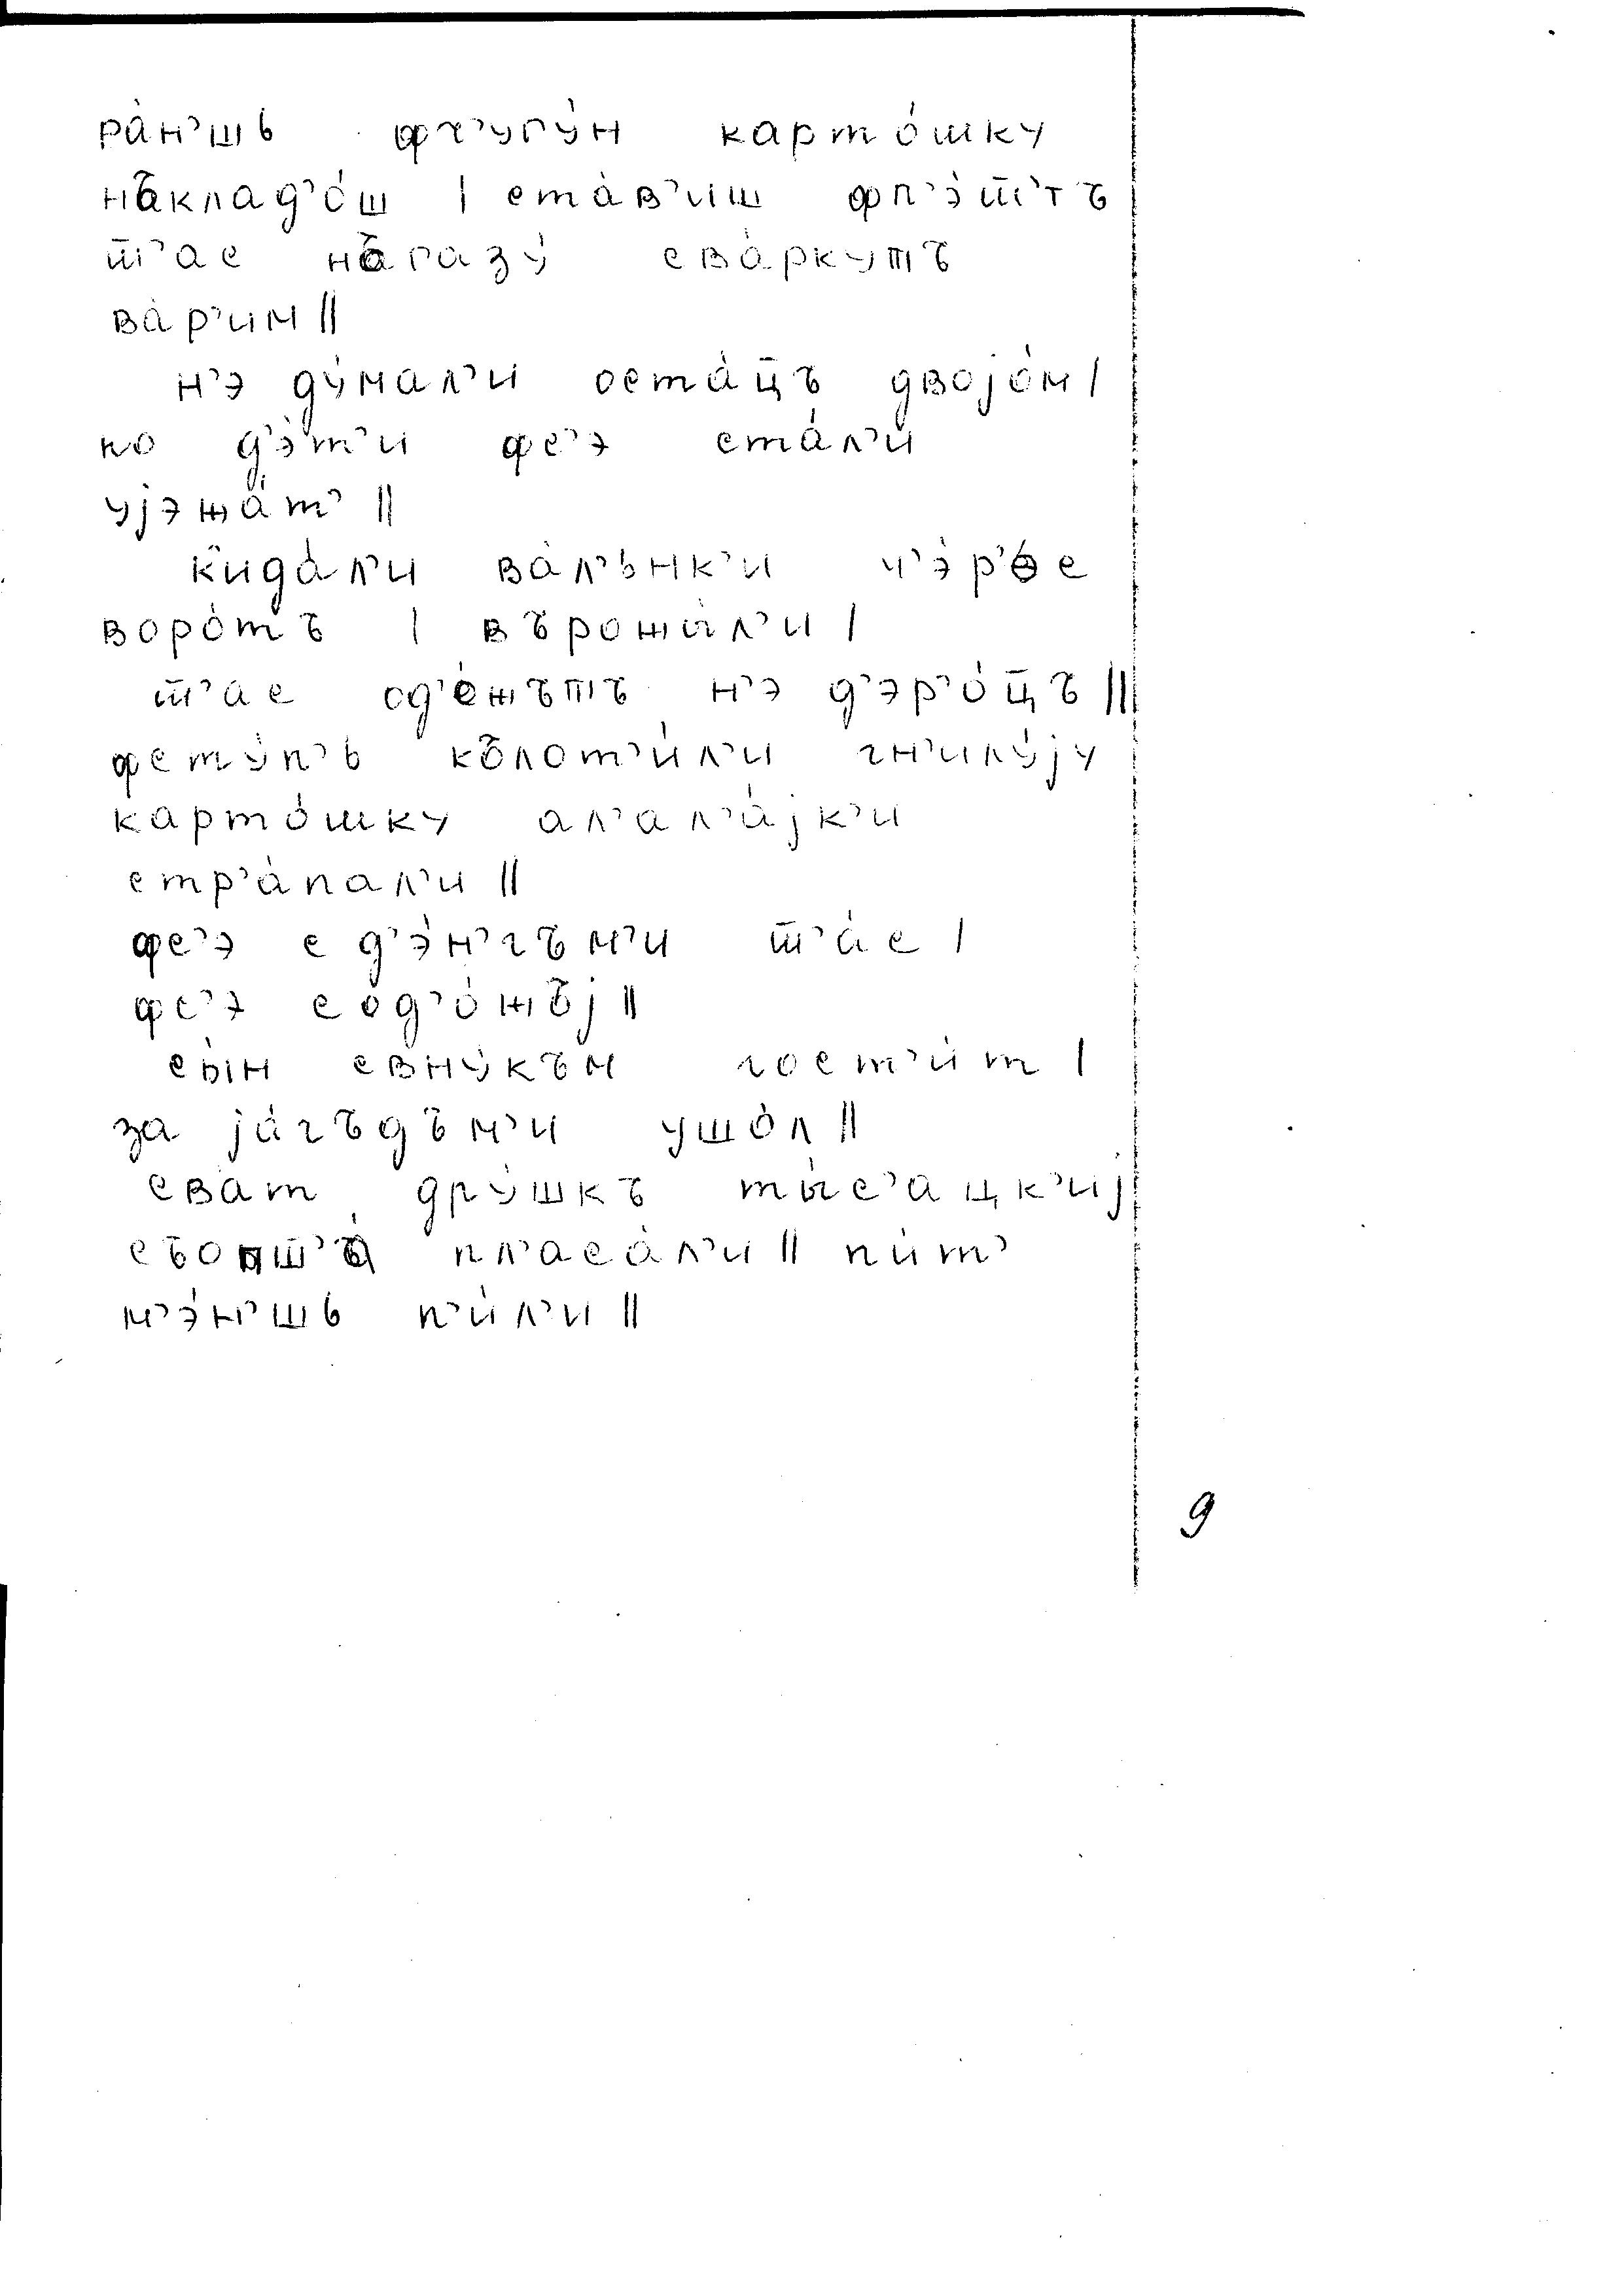 ра́н'шь фч'угу́н карто́шку
нъклад'о́ш | ста́в'иш фп'э́ш̅'тъ
ш̅'ас нъгазу́ сва́ркут̅ъ
ва́р'им ||
н'э ду́мал'и оста́ц̅ъ двоjо́м |
но д'э́т'и фс'э ста́л'и
уjэжа́т' ||
кида́л'и ва́л'ьнк'и ч'э́р'ес
воро́тъ | върожы́л'и |
ш̅'ас од'о́жът̅ъ н'э д'эр'о́ц̅ъ ||
фсту́п'ь кълот'и́л'и гн'илу́jу
карто́шку ал'ал'а́jк'и
стр'а́пал'и ||
фс'э с д'э́н'гъм'и ш̅'а́с |
фс'э сод'о́жъj ||
сы́н свну́към гост'и́т |
за jа́гъдъм'и ушо́л ||
сва́т дру́шкъ ты́с'ацк'иj
пл'аса́л'и || пи́т'
м'э́н'шь п'и́л'и ||
9